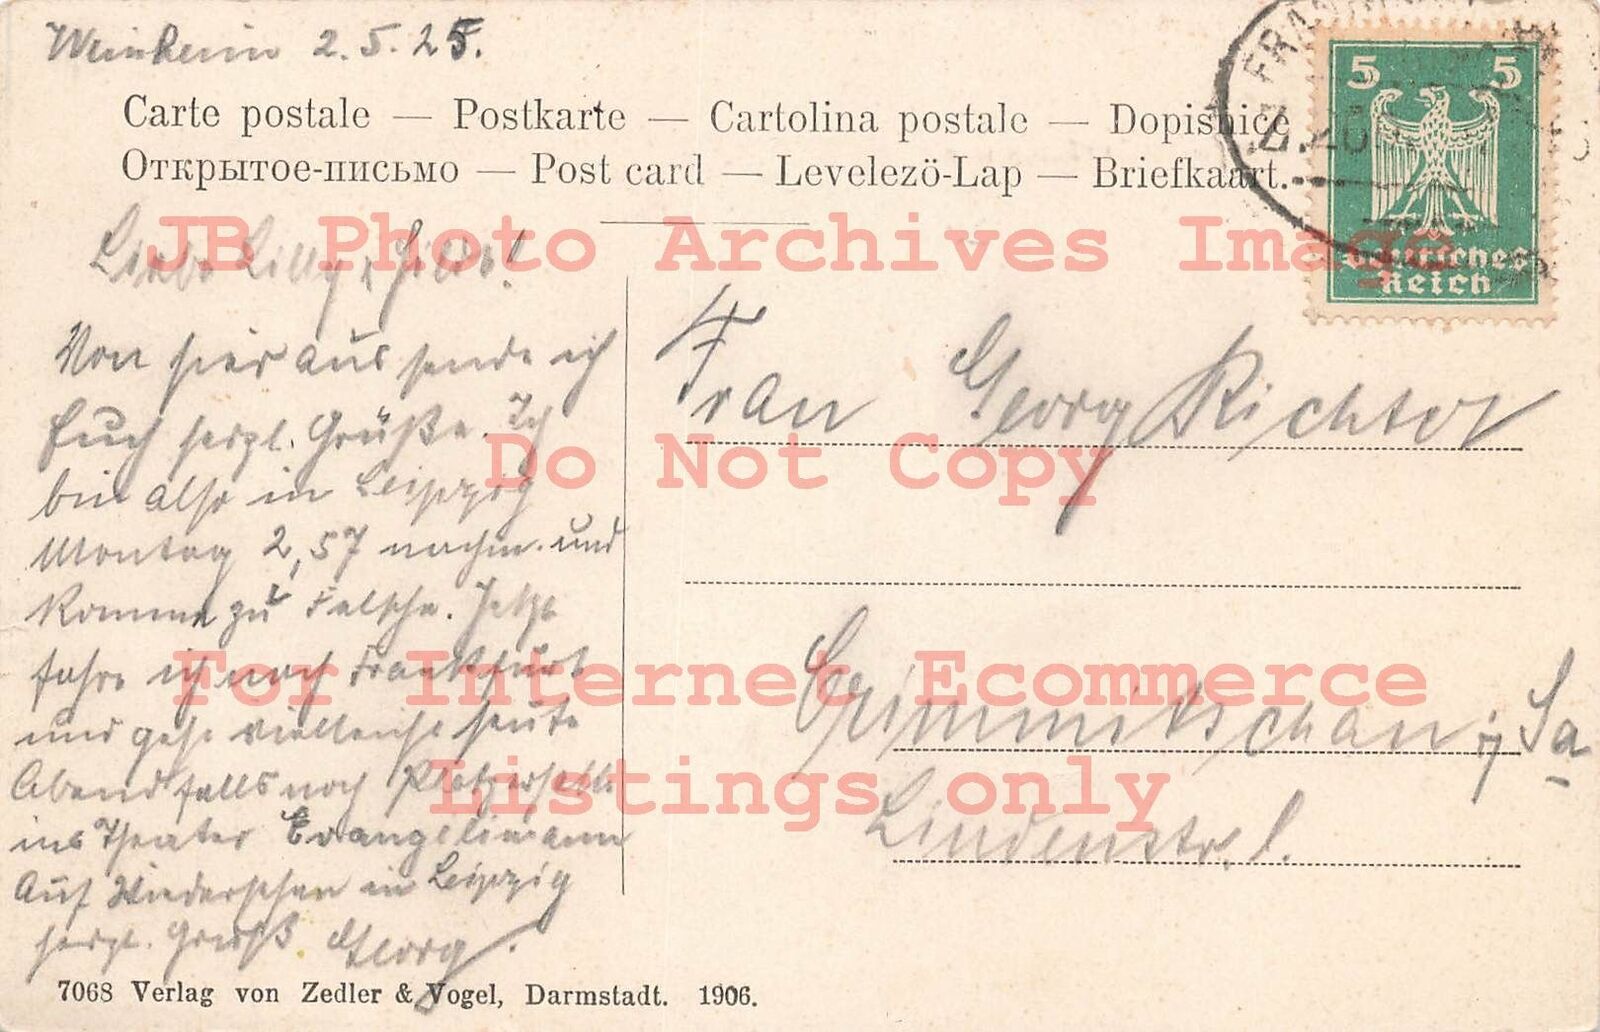 Weinheim 2.5.25.
Carte postale — Postkarte — Cartolina postale — Dopisnice
Открытое-письмо — Post card — Levelező-Lap — Briefkaart.
5 5
Deutsches
Reich
JB Photo Archives Image
Liebe Lilly,
Von hier aus sende ich
Euch herzl. Grüße. Ich
bin also in Leipzig
Montag 2,57 nachm. und
komme zu Felsche. Jetzt
fahre ich nach Frankfurt
und gehe vielleicht heute
Abend falls noch Plätze
ins Theater Evangelimann
Auf Wiedersehen in Leipzig
herzl. Gruß Georg.
Do Not Copy
For Internet Ecommerce
Listings only
Frau Georg Richter
Crimmitschau i/Sa
Lindenstr. 1.
7068 Verlag von Zedler & Vogel, Darmstadt. 1906.